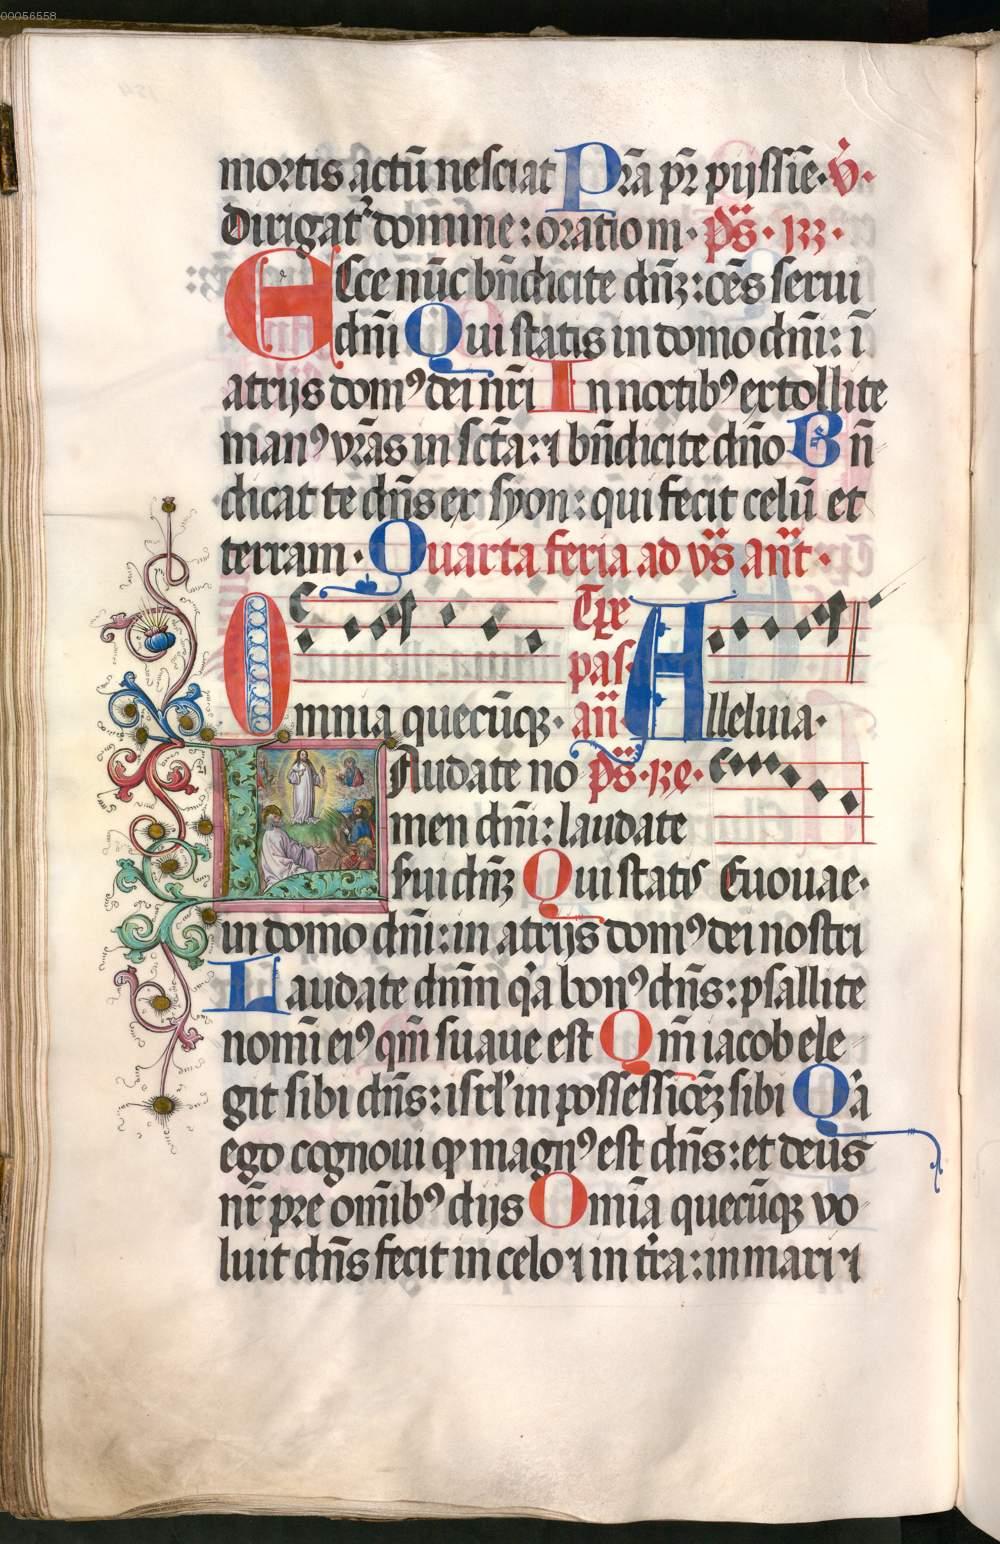 00056558
mortis actū nesciat Prā pr̄ pijssīe· v̄·
Dirigat᷑ domine: oratio m· ps̄·133·
Ecce nūc bn̄dicite dn̄ꝫ: oēs serui
dn̄i Qui statis in domo dn̄i: ī
atrijs domꝰ dei nr̄i In noctibꝰ extollite
manꝰ vr̄as in sctā: ⁊ bn̄dicite dn̄o Bn̄
dicat te dn̄s ex syon: qui fecit celū et
terram· Quarta feria ad vs̄ an̄t·
Tp̄e
pas·
Omnia quecūqꝫ· an̄· Alleluia·
Laudate no ps̄·
men dn̄i: laudate
serui dn̄ꝫ Qui statis Euouae·
in domo dn̄i: in atrijs domꝰ dei nostri
Laudate dn̄m qꝛa bonꝰ dn̄s: psallite
nomī eiꝰ qm̄ suaue est Qm̄ iacob ele
git sibi dn̄s: isrl̄ in possessiōeꝫ sibi Qꝛa
ego cognoui ꝙ magnꝰ est dn̄s: et deus
nr̄ pre om̄ibꝰ dijs Om̄ia quecūqꝫ vo
luit dn̄s fecit in celo ⁊ in tr̄a: in mari ⁊